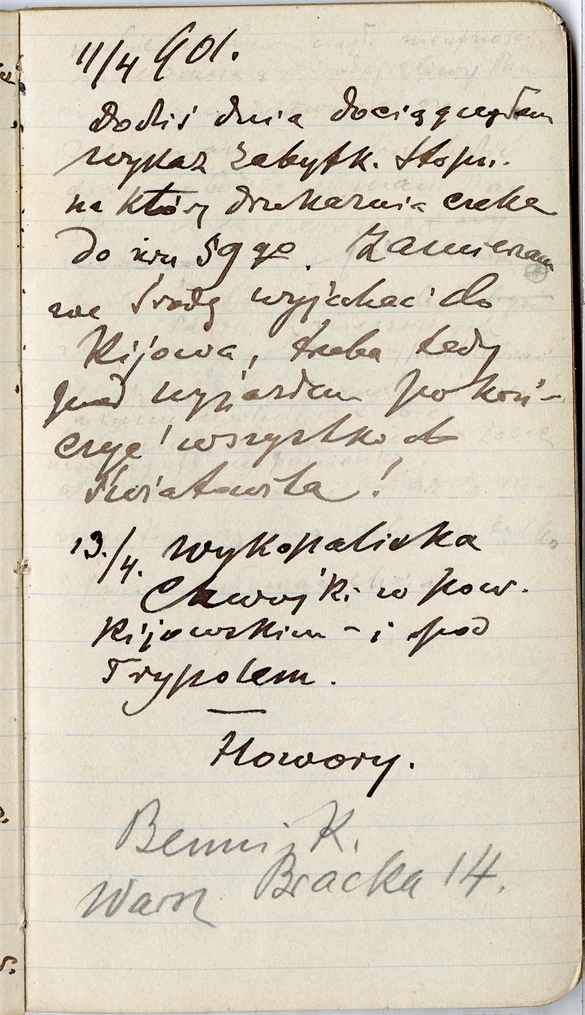 11/4 901.
Dodziś dnia dociągnęłam
wykaz Zabytk. Stopn.
na który drukarnia czeka
do nru 59go. Zamierzam
we środę wyjechać do
Kijowa, trzeba tedy
przed wyjazdem pokoń-
czyć wszystko do
Światowita!
13./4. Wykopaliska
Chwojki w pow.
Kijowskim - i pod
Trypolem.
Howory.
Benni K.
Warsz Bracka 14.